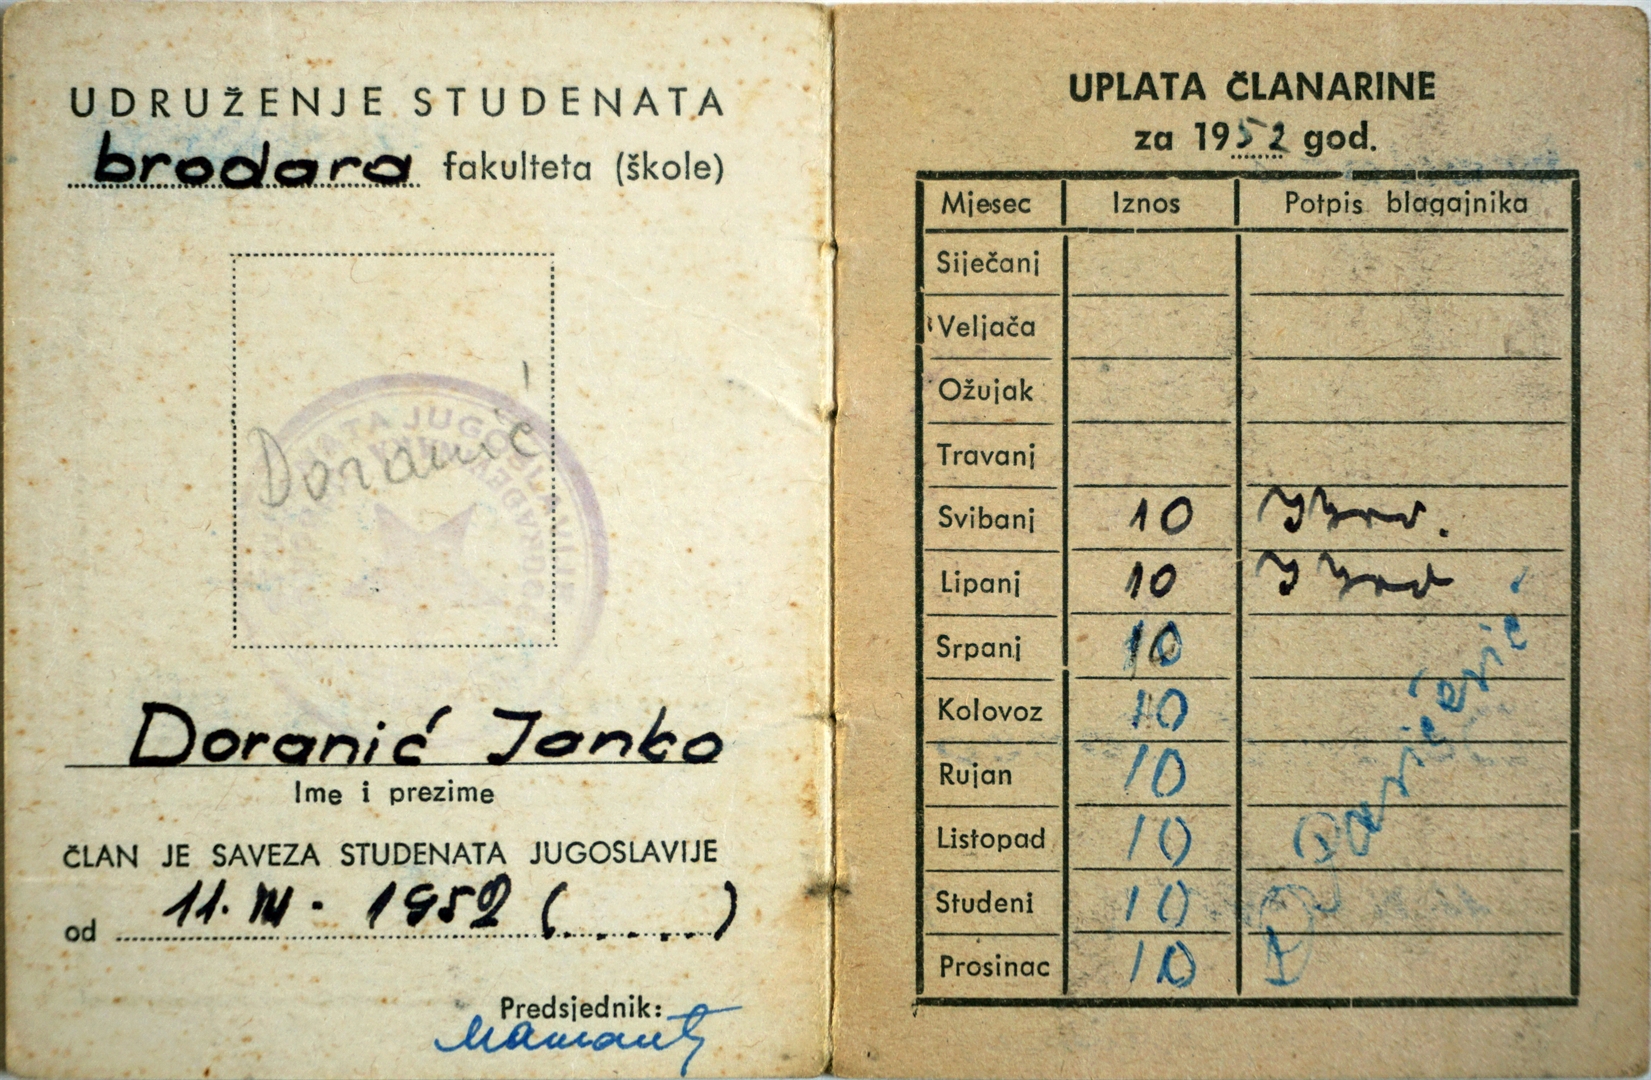 UDRUŽENJE STUDENATA
brodara fakulteta (škole)
Doranić
Doranić Janko
Ime i prezime
ČLAN JE SAVEZA STUDENATA JUGOSLAVIJE
od 11. III. 1952 (. . . . .)
Predsjednik:
UPLATA ČLANARINE
za 1952 god.
Mjesec Iznos Potpis blagajnika
Siječanj
Veljača
Ožujak
Travanj
Svibanj 10
Lipanj 10
Srpanj 10
Kolovoz 10
Rujan 10
Listopad 10
Studeni 10
Prosinac 10